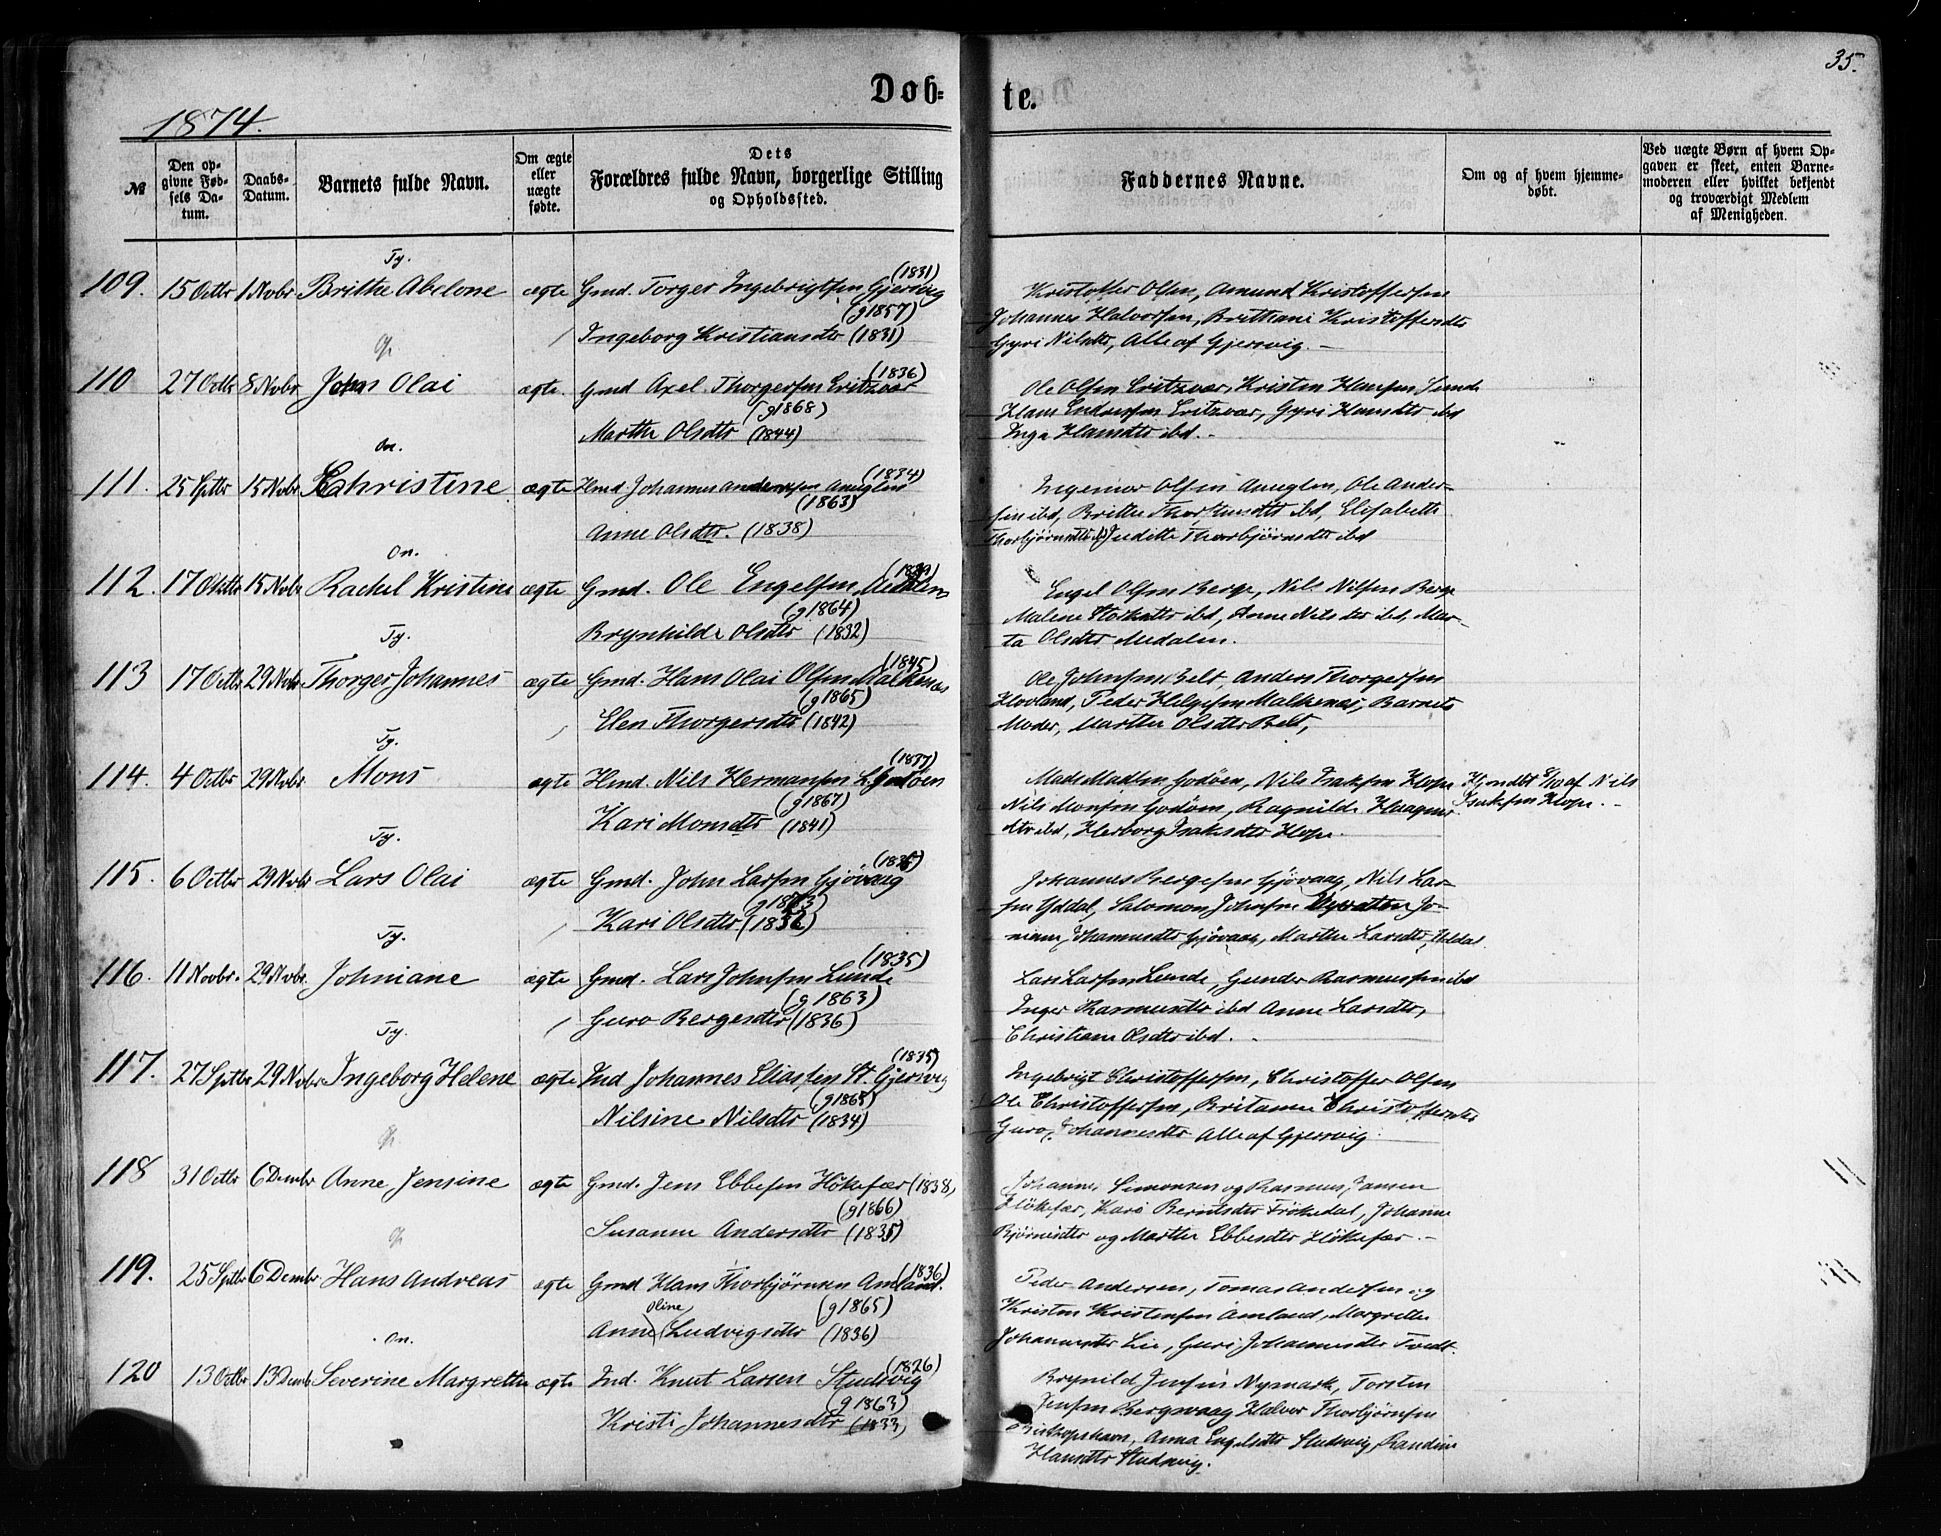 35.
Døb=
te.
1874.
№
Den op=
givne Fød=
sels Da=
tum.
Daabs=
Datum.
Barnets fulde Navn.
Om ægte
eller
uægte
fødte.
Dets
Forældres fulde Navn, borgerlige Stilling
og Opholdssted.
Faddernes Navne.
Om og af hvem hjemme=
døbt.
Ved uægte Børn af hvem Op=
gaven er skeet, enten Barne=
moderen eller hvilket bekjendt
og troværdigt Medlem
af Menigheden.
Ty.
109. 15 Octbr 1 Novbr Brithe Abelone ægte Gmd. Torger Ingebrigtsen Gjersvig (1831)
(g 1857)
Ingeborg Kristiansdtr (1831)
Kristoffer Olsen, Amund Kristoffersen
Johannes Halvorsen, Brithani Kristoffersdtr
Gyri Nilsdtr, Alle af Gjersvig. -
110 27 Octbr 8 Novbr Johns Olai ægte. Gmd Axel Thorgersen Eritzvær (1836)
(g 1868)
Marthe Olsdtr (1844)
Ole Olsen Eritzvær, Kristen Hansen Sunde
Hans Endresen Eritzvær, Gyri Hansdtr ibd
Inga Hansdtr ibd. -
On.
111. 25 Sptbr 15 Novbr Christine ægte Hmd Johannes Andersen Anuglen (1834)
(1863)
Anne Olsdtr. (1838)
Ingemor Olsen Anuglen, Ole Ander-
sen ibd, Brithe ibd, Elisabeth
Thorbjørnsdtr ibd Judithe Thorbjørnsdtr ibd
On.
112. 17 Octbr 15 Novbr Rachel Kristine ægte Gmd. Ole Engelsen Medalen
(g 1864)
Brynhilde Olsdtr (1832)
Engel Olsen Berge, Nils Nilsen Berge
Malene ibd, Anne Nilsdtr ibd, Mar-
ta Olsdtr Medalen.
Ty.
113 17 Octbr 29 Novbr Thorger Johannes ægte Gmd. Hans Olai Olsen Malkenæs (1845)
(g 1865)
Elen Thorgersdtr (1842)
Ole Johnsen Belt, Anders Thorgersen
Hovland, Peder Helgesen Malkenæs, Barnets
Moder, Marthe Olsdtr Belt,
Ty.
114. 4 Octbr 29 Novbr Mons ægte Hmd. Nils Hermansen Godøen
(g 1867)
Kari Monsdtr (1841)
Mads Madsen Godøen, Nils Isaksen Hope
Nils Monsen Godøen, Ragnilde Haagens
dtr ibd, Herborg Isaksdtr Hope.
Hjmdbt 8/10 af Nils
Isaksen Hope. -
Ty.
115. 6 Octbr 29 Novbr Lars Olai ægte Gmd. John Larsen Gjøvaag (1835)
(g 1863)
Kari Olsdtr (1836)
Johannes Bergesen Gjøvaag, Nils Lar-
sen Yddal, Salomon Johnsen Jo-
niane Johannesdtr Gjøvaag, Marthe Larsdtr, Uddal
Ty.
116. 11 Novbr. 29 Novbr. Johniane ægte Gmd. Lars Johnsen Lunde (1835)
(g 1863)
Guro Bergesdtr (1836)
Lars Larsen Lunde, Gunder Rasmussen ibd
Inger Rasmusdtr ibd Anne Larsdtr,
Christiane Olsdtr ibd. -
Ty.
117. 27 Sptbr 29 Novbr Ingeborg Helene ægte Ind Johannes Eliassen St. Gjersvig (1835)
(g 1865)
Nilsine Nilsdtr (1834)
Ingebrigt Christoffersen, Christoffer Olsen
Ole Christoffersen, Britanne Christoffersdtr
Guro Johannesdtr Alle af Gjersvig.
118 31 Octbr 6 Dembr Anne Jensine ægte Gmd. Jens Ebbesen Høkefær (1838)
(g 1866)
Susanne Andersdtr (1835)
Johannes Simonsen og Rasmus Jansen
Høkefær, Kari Berntsdtr Frøkedal, Johanne
Bjørnsdtr og Marthe Ebbesdtr Høkefær. -
119. 25 Sptbr 6 Dembr Hans Andreas ægte Gmd Hans Thorbjørnsen Amland. (1836)
(g 1865)
Oline
Anne Ludvigsdtr (1836)
Peder Andersen, Tomas Andersen og
Kristen Kristensen Amland, Margrethe
Johannesdtr Lie, Guri Johannesdtr Tvedt.
On.
120 13 Octbr 13 Dembr Severine Margrethe ægte Ind. Knut Larsen Studsvig (1826)
(g 1863)
Kristi Johannesdtr (1833)
Brynild Jensen Nymark, Torsten
Jensen Bergsvaag Halvor Thorbjørnsen
Biskopshavn, Anna Engelsdtr Studsvig, Randine
Hansdtr Studsvig.